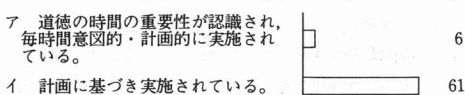 ア　道徳の時間の重要性が認識され,
毎時間意図的・計画的に実施され
ている。
6
イ　計画に基づき実施されている。
61